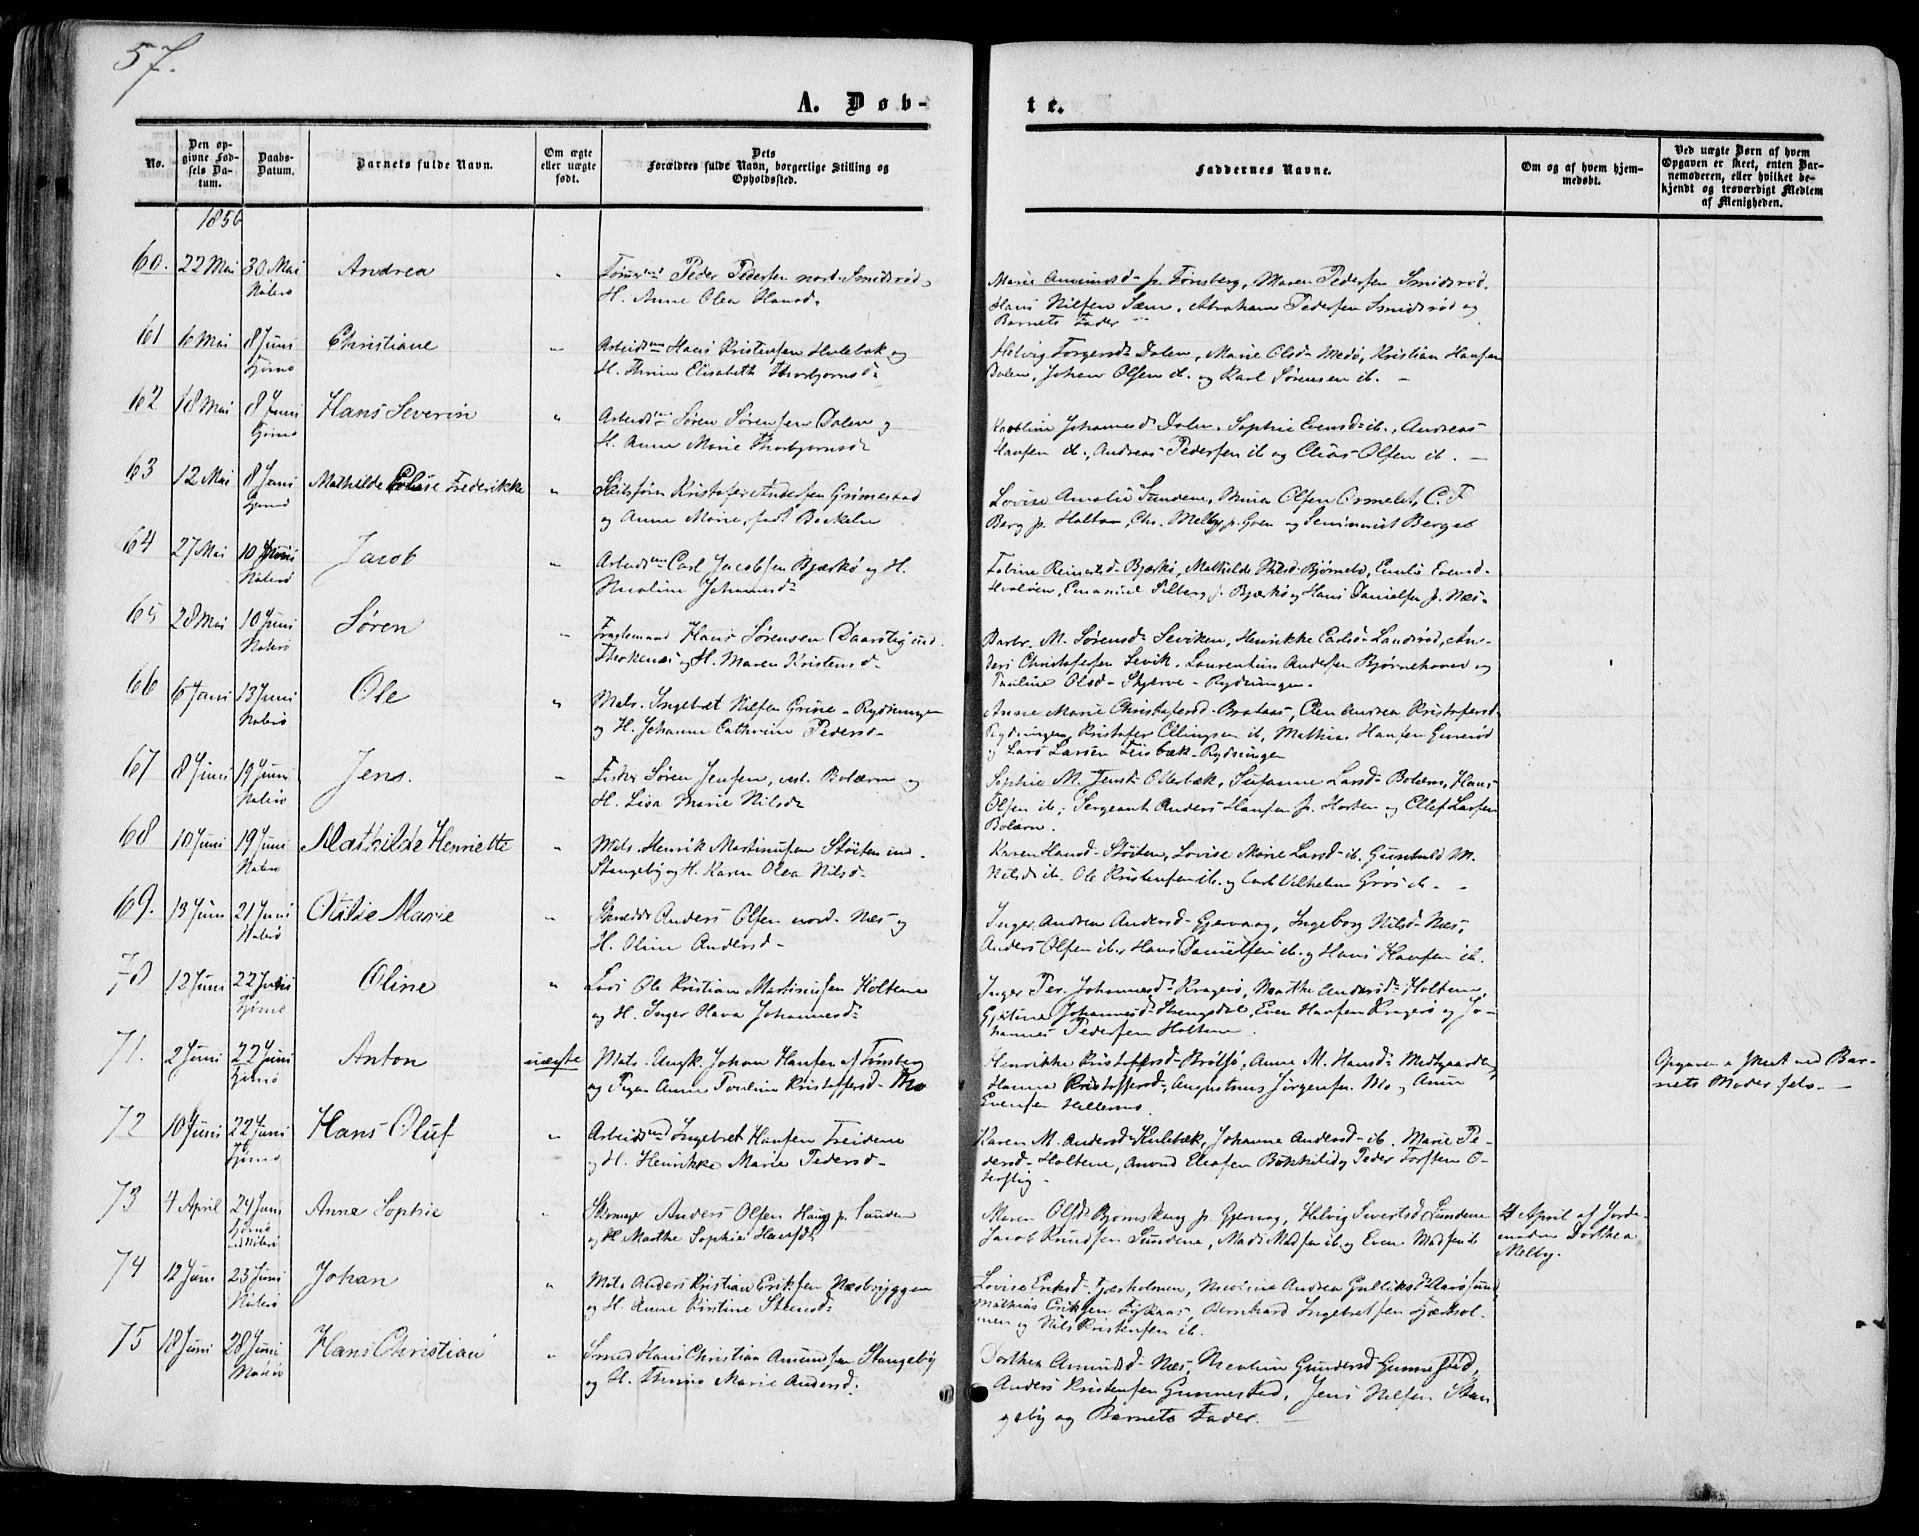 57.
A. Døb-
te.
No.
Den op-
givne Fød-
sels Da-
tum.
Daabs-
Datum.
Barnets fulde Navn.
Om ægte
eller uægte
født.
Dets
Forældres fulde Navn, borgerlige Stilling og
Opholdssted.
Faddernes Navne.
Om og af hvem hjem-
medøbt.
Ved uægte Børn af hvem
Opgaven er skeet, enten Bar-
nemoderen, eller hvilket be-
kjendt og troværdigt Medlem
af Menigheden.
1856
60. 22 Mai 30 Mai Andrea " Peder Pedersen nord. Smidsrød
Nøterø H. Anne Olea Hansd.
Marie p. Tønsberg, Maren Pedersen Smidsrød,
Hans Nilsen Sæm, Abraham Pedersen Smidsrød og
Barnets Fader
61 6 Mai 8 Juni Christiane " Arbeidsm Hans Kristensen Hulebak og
Tjømø H. Elisabeth Thorbjørnsd.
Helvig Torgersd. Dalen, Marie Olsd. Medø, Kristian Hansen
Dalen, Johan Olsen ib. og Karl Sørensen ib. -
62 18 Mai 8 Juni Hans Severin " Arbeidsm Søren Sørensen Dalen og
Tjømø H. Anne Marie Thorbjørnsd.
Johannesd. Dalen, Sophie Evensd. ib., Andreas
Hansen ib., Andreas Pedersen ib og Elias Olsen ib. -
63 12 Mai 8 Juni Mathilde Elise Frederikke " Kristofer Andersen Grimestad
Tjømø og Anne Marie, født
Lovise Amalie Sundene, Mina Olsen Ormelet, C. F.
Berg p. Holtan, Chr. Melby p. Goen og Seminarist Berget
64 27 Mai 10 Juni Jacob " Arbeidsm Carl Jacobsen Bjærkø og H.
Nøterø Nicoline Johannesd.
Reinertsd. Bjerkø, Mathilde Nilsd. Bjørnebo, Emilie Evensd.
Emanuel Silberg p. Bjærkø og Hans Danielsen p. Næs.
65 28 Mai 10 Juni Søren " Hans Sørensen
Nøterø og H. Maren Kristensd.
Barbr. M. Sørensd. Leviken, Henrikke Carlsd. Landsrød, An-
ders Christofersen Levik, Laurentius Andersen Bjørnehoved og
Pauline Olsd. Skjerve-Rydningen.
66 6 Juni 13 Juni Ole " Mats. Ingebret Nilsen Grine-Rydningen
Nøterø og H. Johanne Cathrine Pedersd.
Anne Marie Christofersd. Brataas, Elen Andrea Kristofersd.
Rydningen, Kristofer Ellingsen ib, Mathias Hansen Gunerød
og Lars Larsen Rydningen
67 8 Juni 19 Juni Jens. " Fisker Søren Jensen, vest. Bolærn og
Nøterø H. Lisa Marie Nilsd.
Sophie M. Jensd. Ollebæk, Susanne Larsd. Bolærn, Hans
Olsen ib., Sergeant Anders Hansen p. Horten og Ellef Larsen
Bolærn.
68 10 Juni 19 Juni Mathilde Henriette " Mats. Henrik Martinusen Støiten ind.
Nøterø Stangeby og H. Karen Olea Nilsd.
Karen Hansd. Støiten, Lovise Marie Larsd. ib. Gunhild M.
Nilsd. ib. Ole Kristensen ib. og Carl Vilhelm ib. -
69. 13 Juni 21 Juni Otilie Marie " Anders Olsen nord. Næs og
Nøterø H. Oline Andersd.
Inger Andrea Andersd. Gjervaag, Ingeborg Nilsd. Næs,
Anders Olsen ib., Hans Danielsen ib. og Hans Hansen ib.
70 12 Juni 22 Juni Oline " Lods Ole Kristian Martinusen Holtene
Tjømø og H. Inger Olava Johannesd.
Inger Johannesd. Kragerø, Marthe Andersd. Holtene,
Johannesd. Strengsdal, Even Hansen Kragerø og Jo-
hannes Pedersen Holtene.
71. 2 Juni 22 Juni Anton uægte Mats. Ungk. Johan Hansen af Tønsberg
Tjømø og Pigen Anne Paulina Kristoffersd. Mo
Henrikke Kristoffersd. Anne M. Hansd. Midtgaarden,
Hanna Kristoffersd., Augustinus Jørgensen Mo og Anun
Evensen
Opgaven er skeet ved Bar-
nets Moder selv. -
72 10 Juni 22 Juni Hans Oluf " Arbeidsm Ingebret Hansen
Tjømø og H. Henrikke Marie Pedersd.
Karen M. Andersd. Hulebæk, Johanne Andersd. ib. Marie Pe-
dersd. Holtene, og Peder Torsten
73 4 April 24 Juni Anne Sophie " Anders Olsen Haug p. Sunden
Tjømø og H. Marthe Sophie Hansd.
Maren Olsd. p. Gjervaag, Helvig Sivertsd. Sundene
Jacob Knudsen Sundene, Mads Madsen ib. og Even Madsen ib
4 April af Jorde-
moder Dorthea
Melby.
74 12 Juni 23 Juni Johan " Mats. Anders Kristian Eriksen Næsbryggen
Nøterø og H. Anne Kristine Steensd.
Lovise Eriksd. Gjæsholmen, Nicoline Andrea Gulliksd. Aarøsund
Mathias Eriksen Bernhard Ingebretsen
og Nils Kristensen ib.
75 18 Juni 28 Juni Hans Christian " Smed Hans Christian Amundsen Stangeby
og H. Marie Andersd.
Dorthea Amundsd. Næs, Nicoline Gundersd. Gunnestad,
Anders Kristensen Gunnestad, Jens Nilsen Stan-
geby og Barnets Fader. -